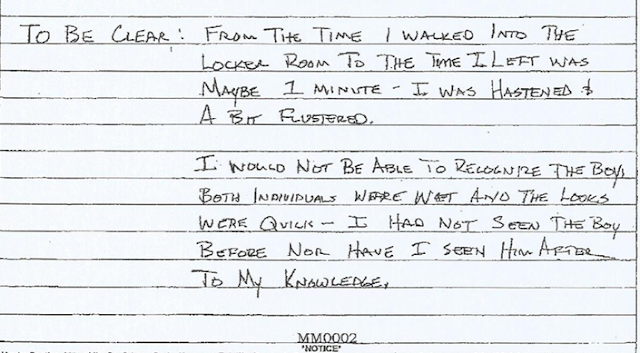 TO BE CLEAR: FROM THE TIME I WALKED INTO THE
LOCKER ROOM TO THE TIME I LEFT WAS
MAYBE 1 MINUTE - I WAS HASTENED &
A BIT FLUSTERED.
I WOULD NOT BE ABLE TO RECOGNIZE THE BOY,
BOTH INDIVIDUALS WERE WET AND THE LOOKS
WERE QUICK - I HAD NOT SEEN THE BOY
BEFORE NOR HAVE I SEEN HIM AFTER
TO MY KNOWLEDGE.
MM0002
"NOTICE"